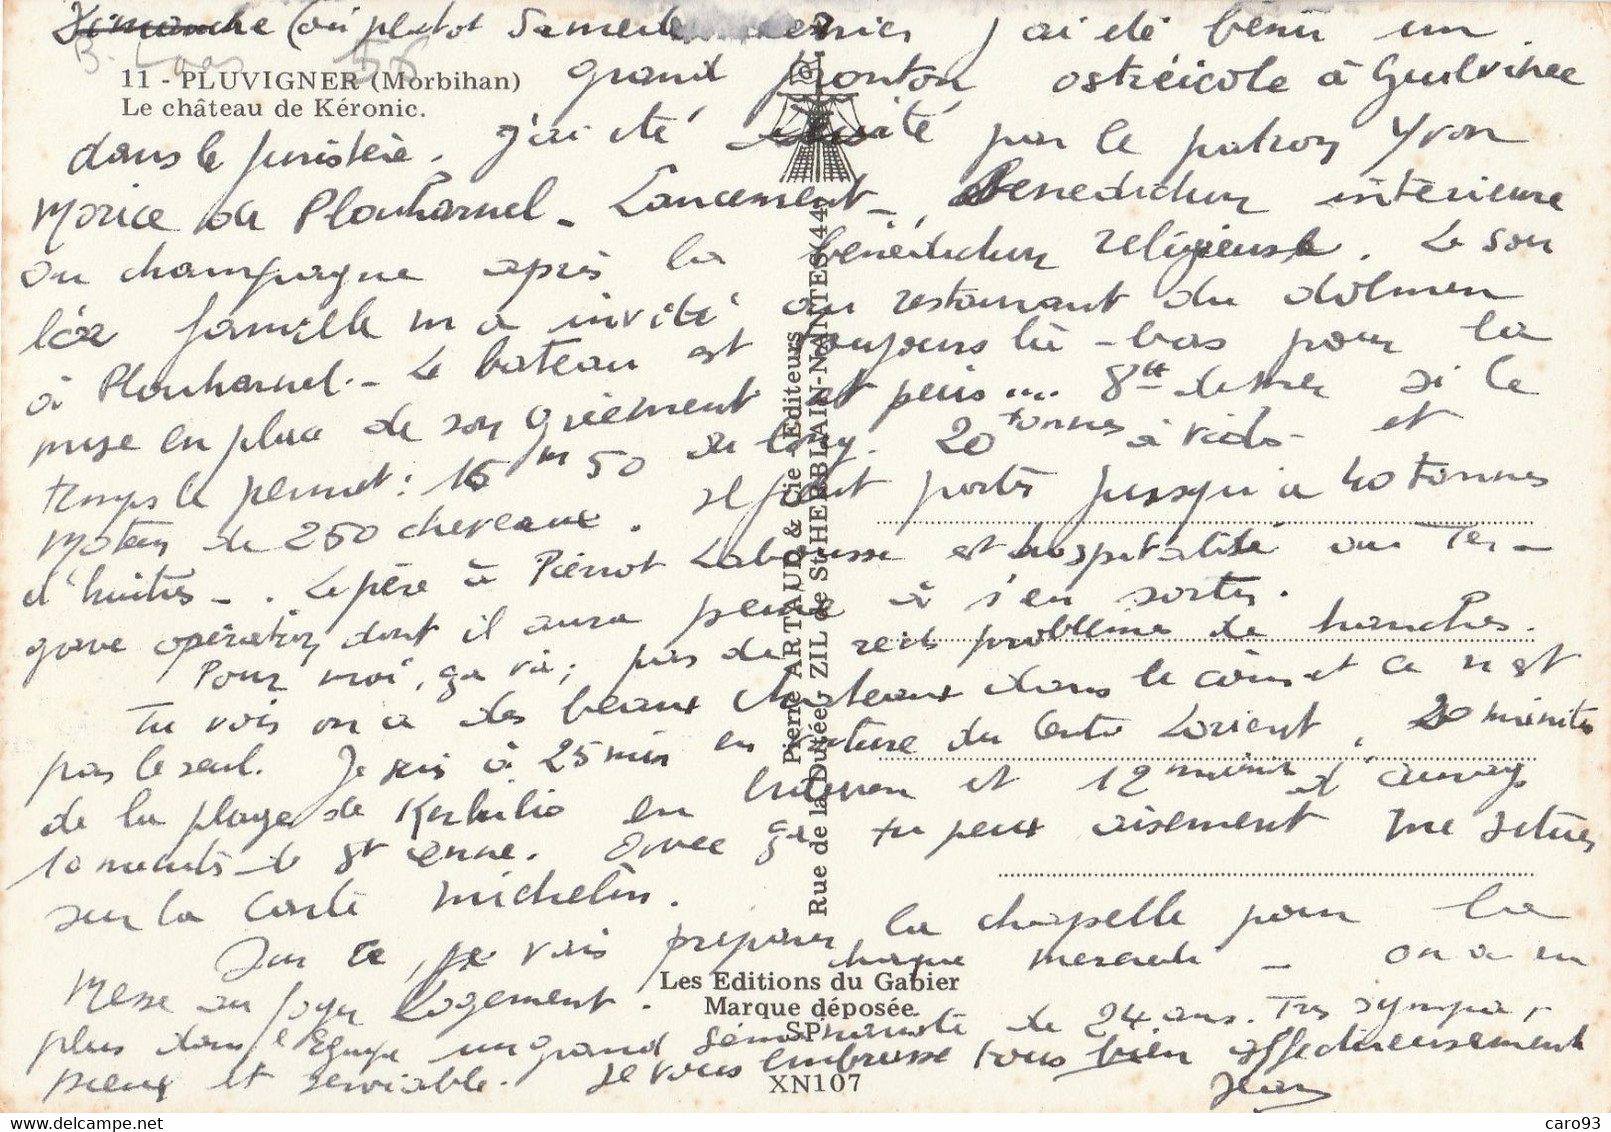 Dimanche (ou plutot Samedi dernier j'ai été bénir un
B. Laos 56
11 - PLUVIGNER (Morbihan)
Le château de Kéronic.
grand ponton ostréicole à Guilvinec
dans le finistère. J'ai été invité par le patron Yvon
Morice de Plouharnel - Lancement -, Bénédiction intérieure
au champagne après la bénédiction religieuse. Le soir
la famille m'a invité au restaurant du dolmen
à Plouharnel. - Le bateau est toujours là-bas pour la
mise en place de son gréement et puis ... 8h de mer si le
temps le permet : 16 m 50 de long. 20 tonnes à vide et
Moteur de 250 chevaux. Il peut porter jusqu'à 40 tonnes
d'huitres -. Le père à Pierrot Labousse est hospitalisé au Ter-
grave opération dont il aura peine à s'en sortir.
Pour moi, ça va ; pas de réels problèmes de hanches.
Tu vois on a des beaux chateaux dans le coin et ce n'est
pas le seul. Je suis à 25 min en voiture du Centre Lorient, 20 minutes
de la plage de Kerhilio en Erdeven et 12 minutes d'Auray
10 minutes de St Anne. Avec ça tu peux aisement me situer
sur la carte Michelin.
Sur ce, je vais préparer la chapelle pour la
Messe au foyer Logement. chaque mercredi - on a en
plus dans l'Equipe un grand séminariste de 24 ans. Très sympa,
pieux et serviable. Je vous embrasse tous bien affectueusement
Jean
Pierre ARTAUD & Cie Editeurs
Rue de la Dutée, ZIL de St-HERBLAIN-NANTES (44)
Les Editions du Gabier
Marque déposée
SP
XN107
caro93